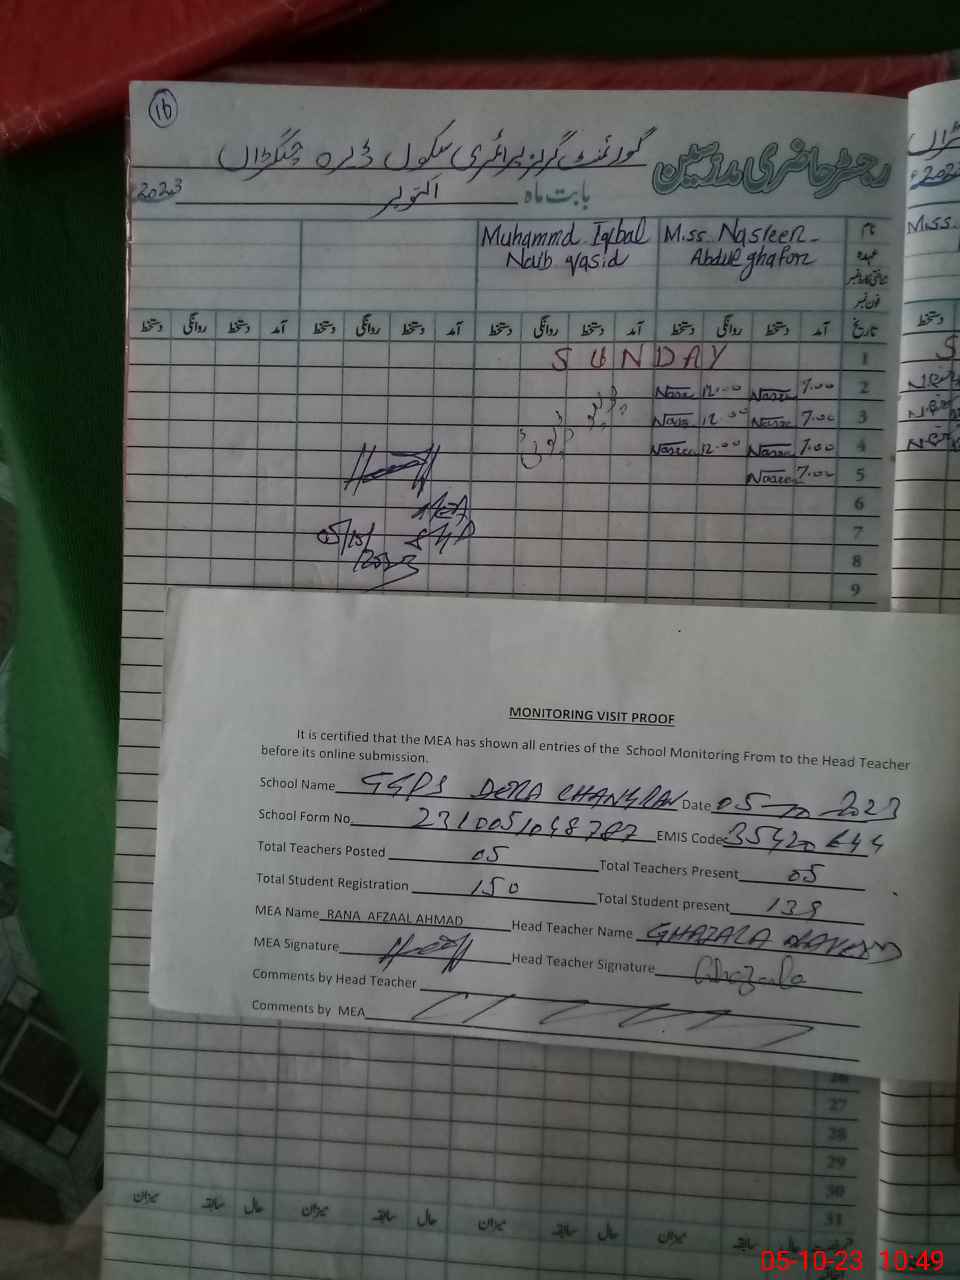 16
رجسٹر حاضری مدرسین گورنمنٹ گرلز پرائمری سکول ڈیرہ چنگڑاں
بابت ماہ اکتوبر 2023
نام Miss Nasreen Abdul ghafoor Muhammd Iqbal Naib qasid
عہدہ
فون نمبر
تاریخ آمد دستخط روانگی دستخط آمد دستخط روانگی دستخط آمد دستخط روانگی دستخط آمد دستخط روانگی دستخط
1 SUNDAY
2 7.00 12.00
3 7.00 12.00
4 7.00 12.00
5 7.00
6
7
8
9
MEA
05/10/
2023
MONITORING VISIT PROOF
It is certified that the MEA has shown all entries of the School Monitoring From to the Head Teacher
before its online submission.
School Name GGPS DERA CHANGRAN Date 05-10-2023
School Form No. 2310051048787 EMIS Code 35420644
Total Teachers Posted 05 Total Teachers Present 05
Total Student Registration 150 Total Student present 138
MEA Name RANA AFZAAL AHMAD Head Teacher Name GHAZALA
MEA Signature Head Teacher Signature Ghazala
Comments by Head Teacher
Comments by MEA
26
27
28
29
30
31
حال سابقہ میزان حال سابقہ میزان حال سابقہ میزان حال سابقہ میزان
05-10-23 10:49